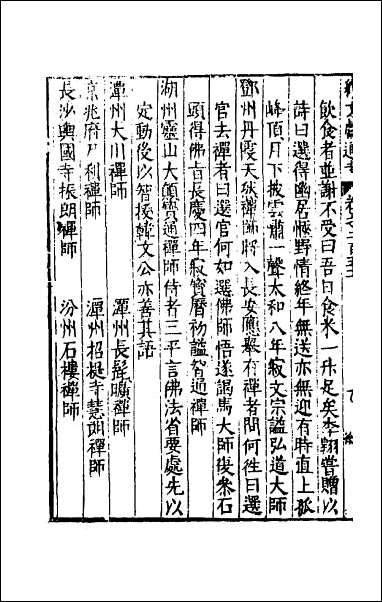 飲食者並謝不受曰吾日食米一升足矣李翱嘗贈以
詩曰選得幽居愜野情終年無送亦無迎有時直上孤
峰頂月下披雲嘯一聲太和八年寂文宗謚弘道大師
鄧州丹霞天然禪師將入長安應舉有禪者問何往曰選
官去禪者曰選官何如選佛師悟遂謁馬大師復參石
頭得佛旨長慶四年寂寶曆初謚智通禪師
湖州靈山大顛寶通禪師侍者三平言佛法省要處先以
定動後以智拔韓文公亦善其話
潭州大川禪師　潭州長髭曠禪師
京兆府尸利禪師　潭州招提寺慧朗禪師
長沙興國寺振朗禪師　汾州石樓禪師